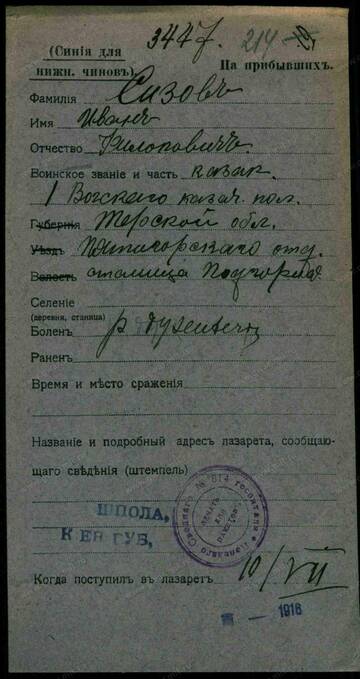 3447. 214
(Синія для
нижн. чиновъ).
На прибывшихъ.
Фамилія Сизовъ
Имя Иванъ
Отчество Филоповичъ.
Воинское званіе и часть казак.
1 Волгскаго казач. пол.
Губернія Терской обл.
Уѣздъ Пятигорскаго отд.
Волость станица Подгорная
Селеніе
(деревня, станица)
Боленъ р dysenteria
Раненъ
Время и мѣсто сраженія
Названіе и подробный адресъ лазарета, сообщаю-
щаго свѣдѣнія (штемпель)
ШПОЛА,
КІЕВ. ГУБ,
Своднаго № 614 госпиталя
Когда поступилъ въ лазаретъ 10/VII
1916